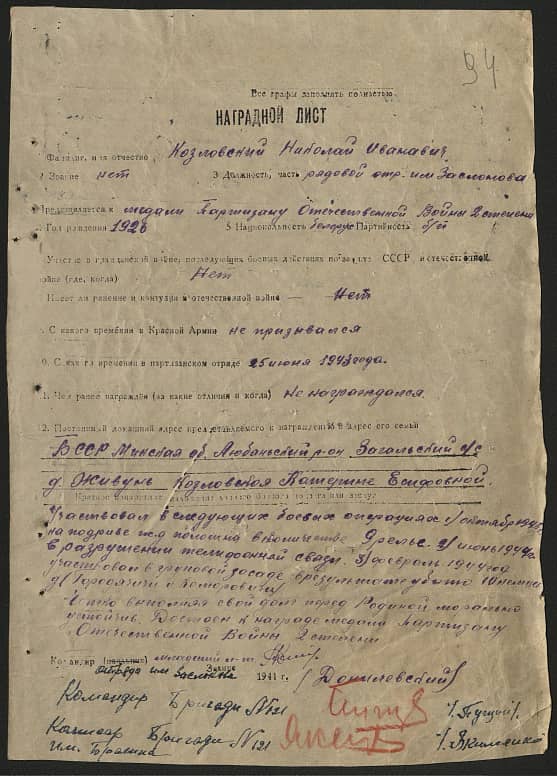 94
Все графы заполнять полностью
НАГРАДНОЙ ЛИСТ
Фамилия, имя отчество Козловский Николай Иванович
2 Звание нет 3 Должность, часть рядовой отр. им Заслонова
Представляется к медали Партизану Отечественной Войны 2 степени
Год рождения 1926 5 Национальность белорус Партийность б/п
Участие в гражданской войне, последующих боевых действиях по защите СССР и отечественной
войне (где, когда) Нет
Имеет ли ранение и контузии в отечественной войне — Нет
С какого времени в Красной Армии не призывался
С какого времени в партизанском отряде 25 июня 1943 года.
1. Чем ранее награждён (за какие отличия и когда) не награждался.
2. Постоянный домашний адрес представляемого к награждению и адрес его семьи
БССР Минская об. Любаньский р-он Загальский с/с
д. Живунь Козловская Катерине Есифовной.
Краткое
Участвовал в следующих боевых операциях 1/ октябрь
на подриве ж.д полотна в количестве 9 рельс. 2/ июнь 1944 г.
В разрушении телефонной связи. 3/ февраль 1944 год
участвовал в засаде в результате убито немца
Четко выполняя свой долг перед Родиной морально
устойчив. Достоен к награде медали Партизану
Отечественной Войны 2 степени
Командир младший л-т
отряда им Заслонова Звание 1941 г. /Даниловский/
Командир Бригады № 121 /Пущин/.
Комисар Бригады № 121 /Якименко/
им. Брагина